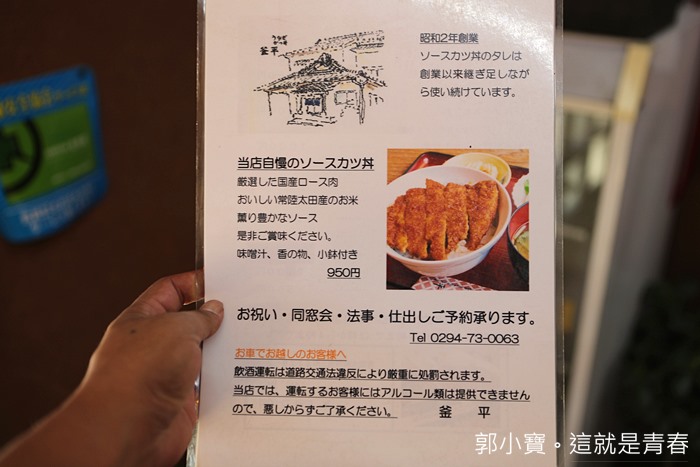 うなぎ
かつ丼
釜平
昭和2年創業
ソースカツ丼のタレは
創業以来継ぎ足しなが
ら使い続けています。
当店自慢のソースカツ丼
厳選した国産ロース肉
おいしい常陸太田産のお米
薫り豊かなソース
是非ご賞味ください。
味噌汁、香の物、小鉢付き
950円
お祝い・同窓会・法事・仕出しご予約承ります。
Tel 0294-73-0063
お車でお越しのお客様へ
飲酒運転は道路交通法違反により厳重に処罰されます。
当店では、運転するお客様にはアルコール類は提供できません
ので、悪しからずご了承ください。 釜 平
郭小寶。這就是青春